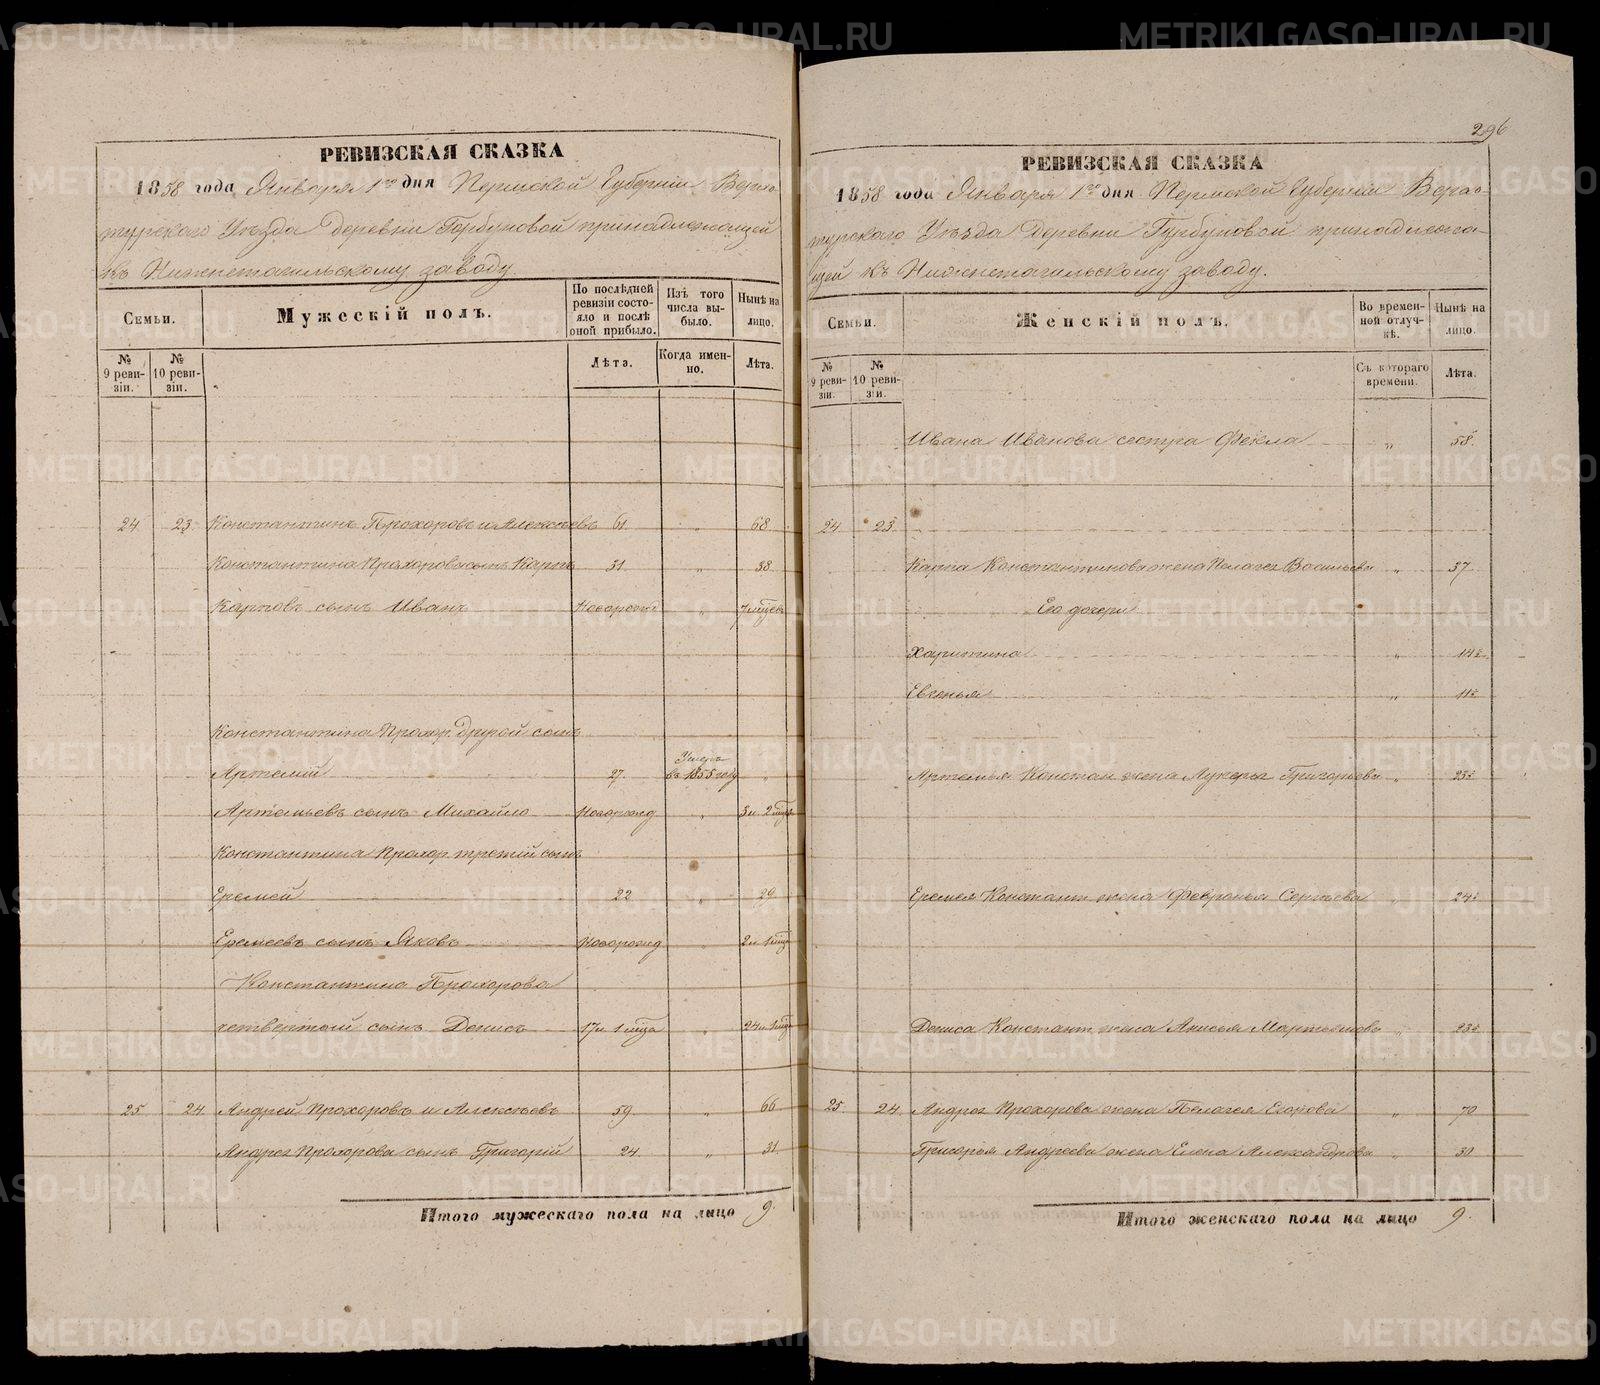 РЕВИЗСКАЯ СКАЗКА
1858 года Января 1го дня Пермской Губерніи Верхо-
турскаго Уѣзда Деревни Горбуновой принадлежащей
къ Нижнетагильскому заводу
Семьи.
Мужескій полъ.
По послѣдней ревизіи состояло и послѣ оной прибыло.
Изъ того числа выбыло.
Нынѣ на лицо.
№ 9 ревизіи.
№ 10 ревизіи.
Лѣта.
Когда именно.
Лѣта.
24 23 Константинъ Прохоровъ и Алексѣевъ 61 „ 68
Константина Прохорова сынъ Карпъ 31 „ 38
Карповъ сынъ Иванъ Новорожд „ 7 мцевъ
Константина Прохор. Другой сынъ
Артемій 27 Умеръ въ 1855 году „
Артемьевъ сынъ Михайло Новорожд „ 3 и 2 мца
Константина Прохор. третій сынъ
Еремей 22 „ 29
Еремеевъ сынъ Яковъ Новорожд „ 2 и 1 мца
Константина Прохорова
четвертый сынъ Денисъ 17 и 1 мца „ 24 и 1 мца
25 24 Андрей Прохоровъ и Алексѣевъ 59 „ 66
Андрея Прохорова сынъ Григорій 24 „ 31
Итого мужескаго пола на лицо 9.
296
РЕВИЗСКАЯ СКАЗКА
1858 года Января 1го дня Пермской Губерніи Верхо-
турскаго Уѣзда Деревни Гурбуновой принадлежа-
щей къ Нижнетагильскому заводу.
Семьи.
Женскій полъ.
Во временной отлучкѣ.
Нынѣ на лицо.
№ 9 ревизіи.
№ 10 ревизіи.
Съ котораго времени.
Лѣта.
Ивана Иванова сестра Фекла „ 58
24 23
Карпа Константинова жена Пелагея Васильева „ 37
Его дочери
Харитина „ 14
Евгенья „ 11
Артемья Констан. жена Лукерья Григорьева „ 23
Еремея Констант. жена Февронья Сергѣева „ 24
Дениса Констант. жена Анисья Мартьянова „ 23
25 24 Андрея Прохорова жена Пелагея Егорова „ 70
Григорья Андреева жена Елена Александрова „ 30
Итого женскаго пола на лицо 9.
METRIKI.GASO-URAL.RU